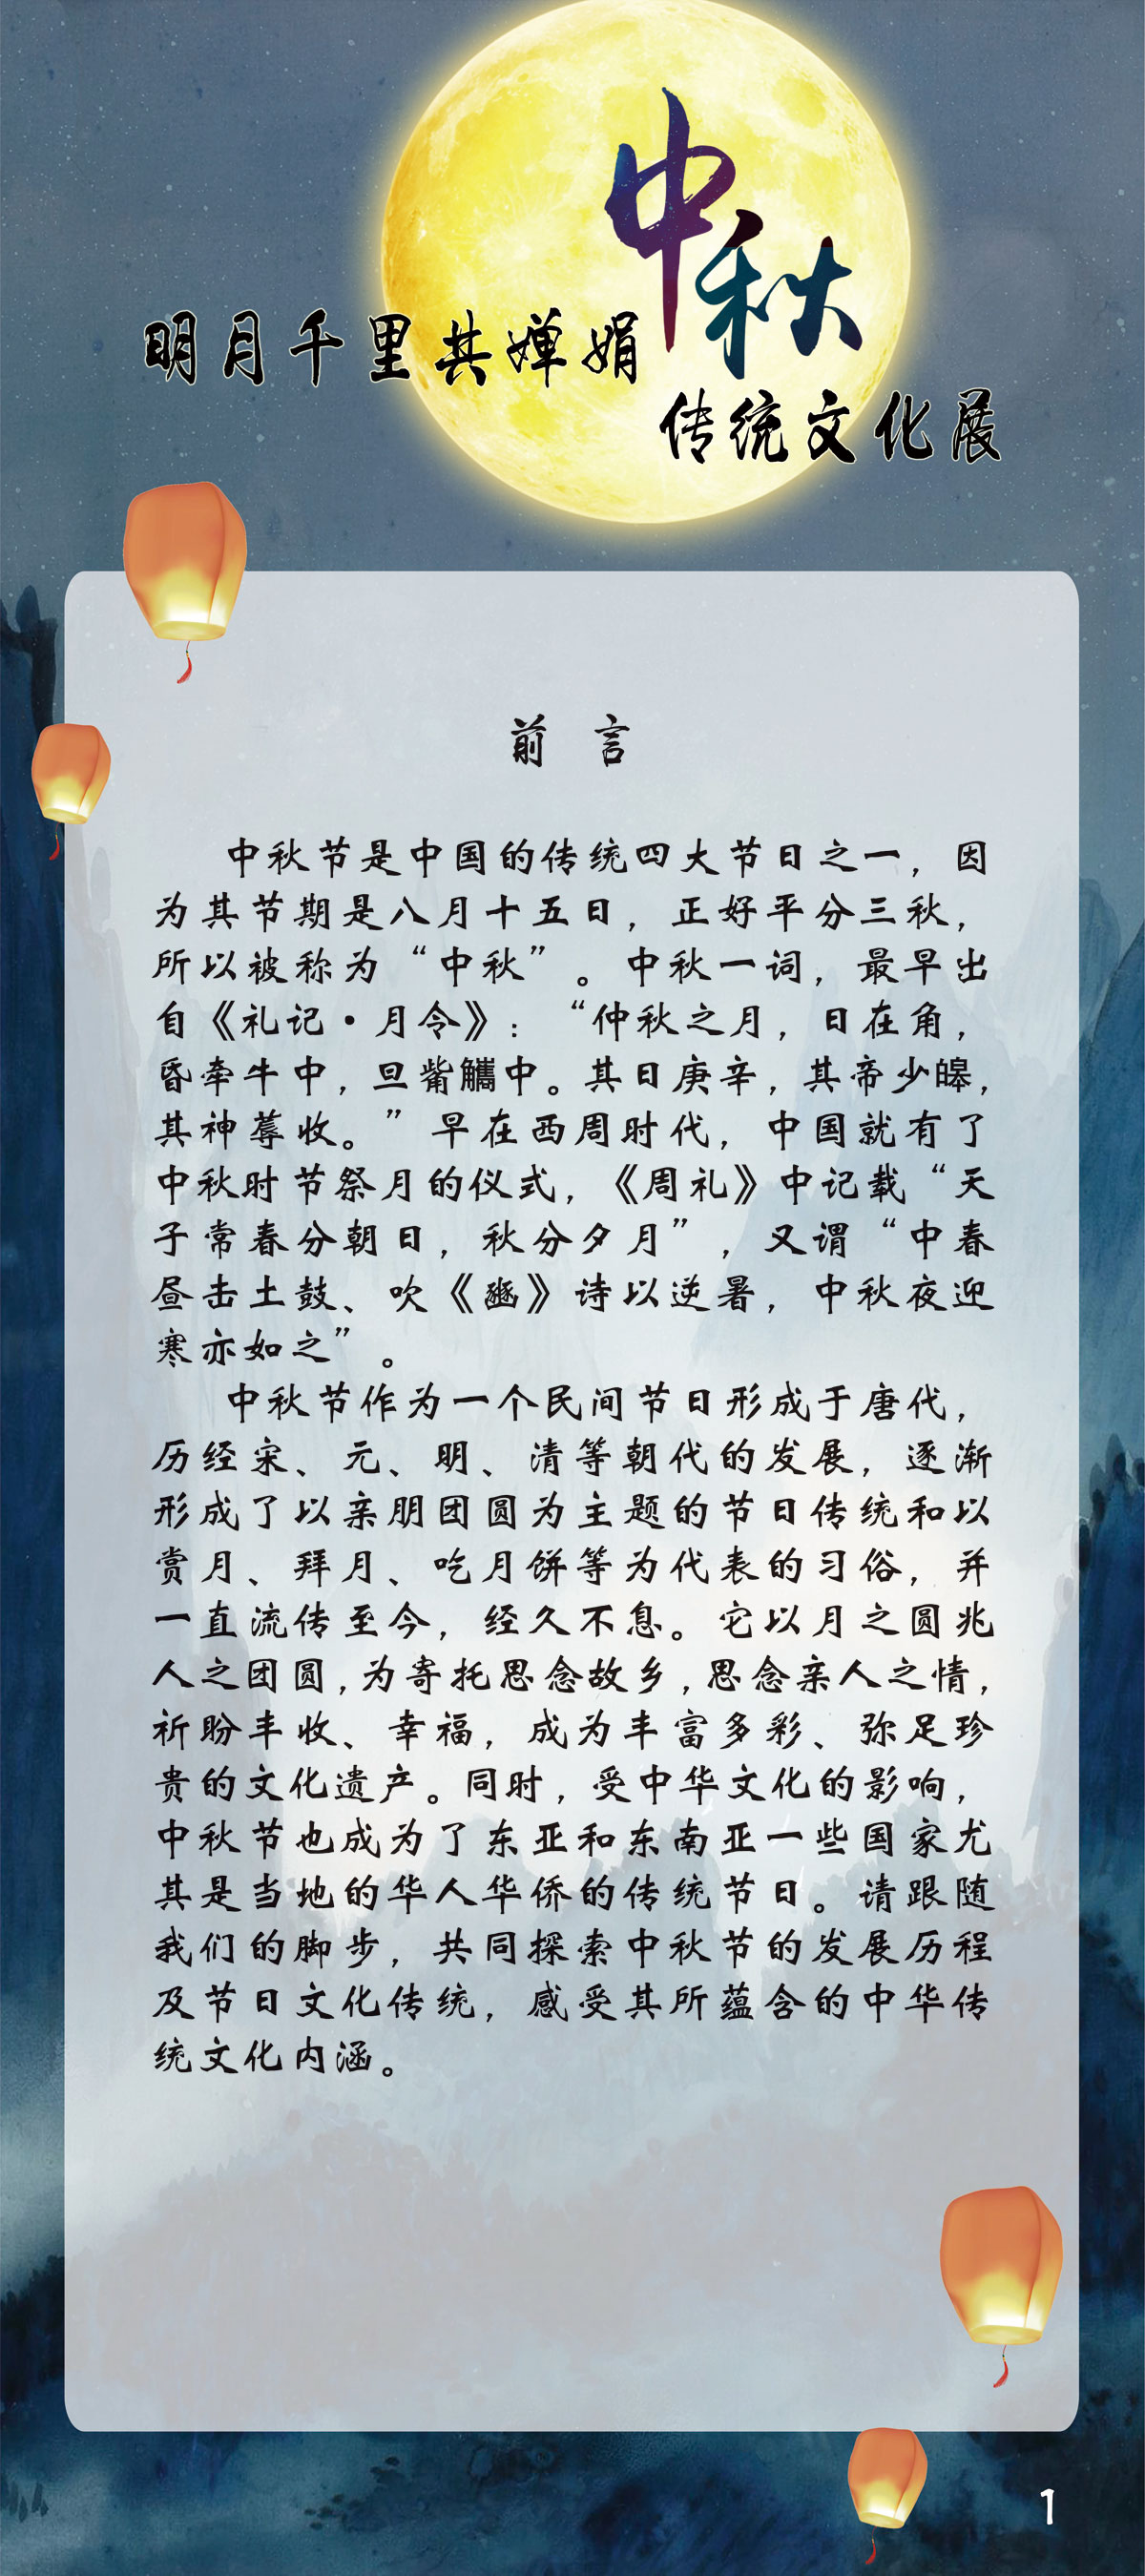 中秋
明月千里共婵娟
传统文化展
前 言
中秋节是中国的传统四大节日之一，因
为其节期是八月十五日，正好平分三秋，
所以被称为“中秋”。中秋一词，最早出
自《礼记·月令》：“仲秋之月，日在角，
昏牵牛中，旦觜觿中。其日庚辛，其帝少皞，
其神蓐收。”早在西周时代，中国就有了
中秋时节祭月的仪式，《周礼》中记载“天
子常春分朝日，秋分夕月”，又谓“中春
昼击土鼓、吹《豳》诗以逆暑，中秋夜迎
寒亦如之”。
中秋节作为一个民间节日形成于唐代，
历经宋、元、明、清等朝代的发展，逐渐
形成了以亲朋团圆为主题的节日传统和以
赏月、拜月、吃月饼等为代表的习俗，并
一直流传至今，经久不息。它以月之圆兆
人之团圆，为寄托思念故乡，思念亲人之情，
祈盼丰收、幸福，成为丰富多彩、弥足珍
贵的文化遗产。同时，受中华文化的影响，
中秋节也成为了东亚和东南亚一些国家尤
其是当地的华人华侨的传统节日。请跟随
我们的脚步，共同探索中秋节的发展历程
及节日文化传统，感受其所蕴含的中华传
统文化内涵。
1